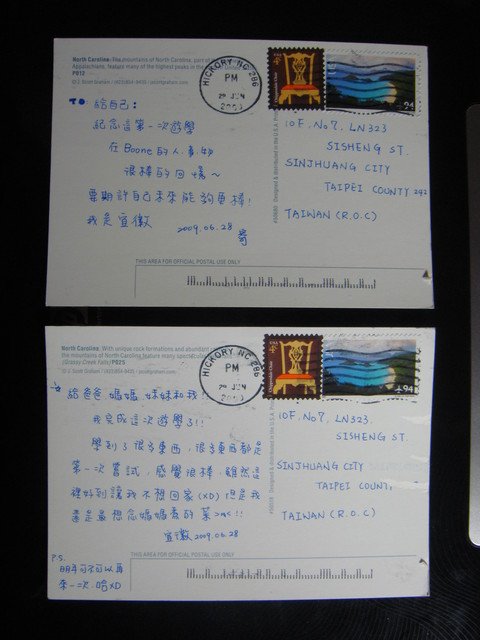 North Carolina: The mountains of North Carolina, part of
Appalachians, feature many of the highest peaks in the
P012
© J. Scott Graham / (423)854-9435 / jscottgraham.com
HICKORY NC 286
PM
29 JUN
2009
USA
Chippendale Chair
94
TO 給自己:
紀念這第一次遊學
在Boone的人事物
很棒的回憶~
要期許自己未來能夠更棒!
我是宜徽
2009.06.28
10F, No7, LN323
SISHENG ST.
SINJHUANG CITY
TAIPEI COUNTY 242
TAIWAN (R.O.C)
Designed & distributed in the U.S.A.
THIS AREA FOR OFFICIAL POSTAL USE ONLY
North Carolina: With unique rock formations and abundant
the mountains of North Carolina feature many spectacular
(Grassy Creek Falls) P025
© J. Scott Graham / (423)854-9435 / jscottgraham.com
HICKORY NC 286
PM
29 JUN
USA
Chippendale Chair
94
給爸爸 媽媽 妹妹和我!!
我完成這次遊學了!!
學到了很多東西,很多東西都是
第一次嘗試,感覺很棒,雖然這
裡好到讓我不想回家(XD)但是我
還是最想念媽媽煮的菜>m<!!
宜徽 2009.06.28
P.S.
明年可不可以再
來一次.哈XD
10F, No7, LN323
SISHENG ST.
SINJHUANG CITY
TAIPEI COUNTY
TAIWAN (R.O.C)
Designed & distributed in the U.S.A.
THIS AREA FOR OFFICIAL POSTAL USE ONLY